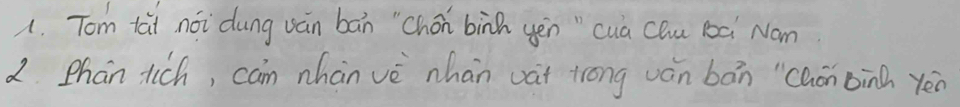 1. Tóm tắt nội dung văn bản "Chốn bình yên" của Chu Bá Nam.
2. Phân tích, cảm nhận về nhân vật trong văn bản "Chốn Bình Yên